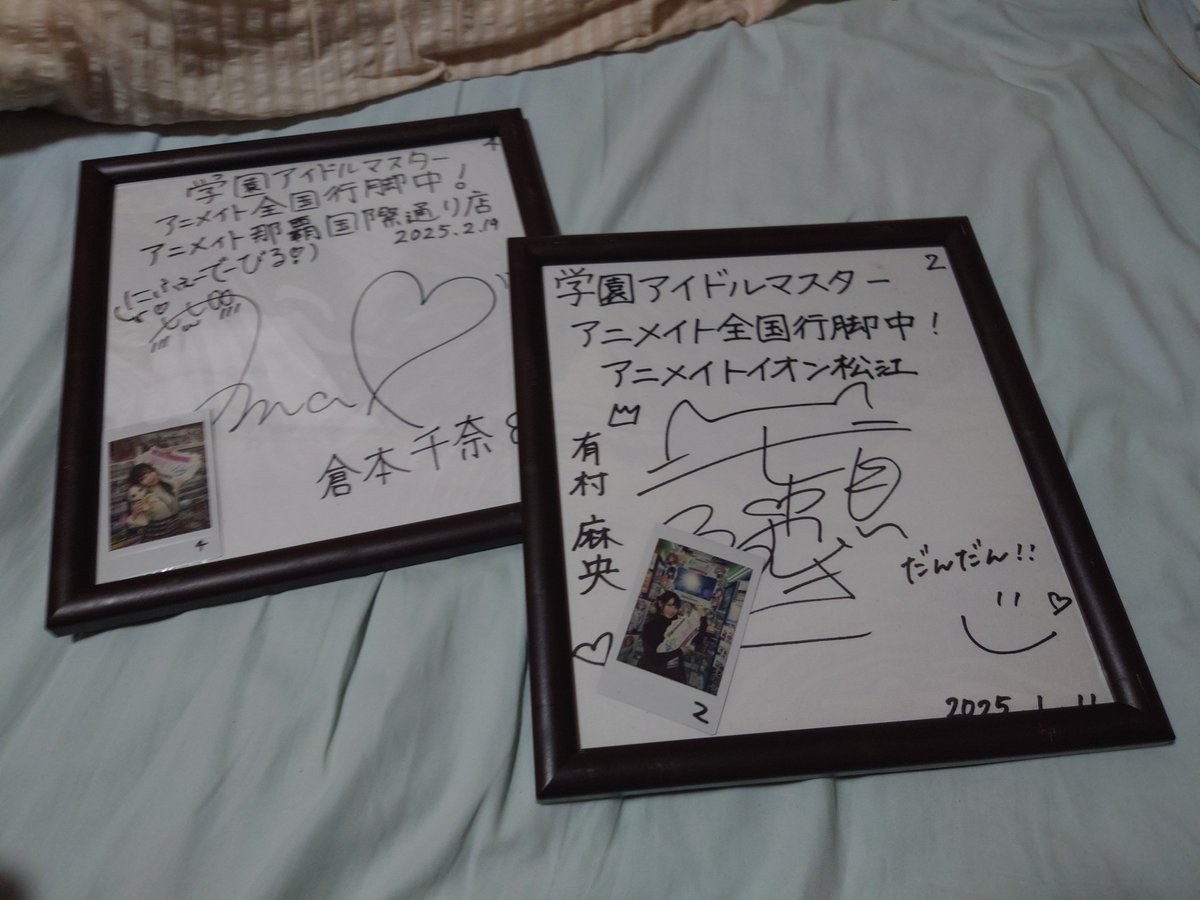 4
学園アイドルマスター
アニメイト全国行脚中!
アニメイト那覇国際通り店
2025.2.19
(にふぇーでーびる♡)
倉本千奈
4
2
学園アイドルマスター
アニメイト全国行脚中!
アニメイトイオン松江
有村 麻央
だんだん!!
2025.1.11
2